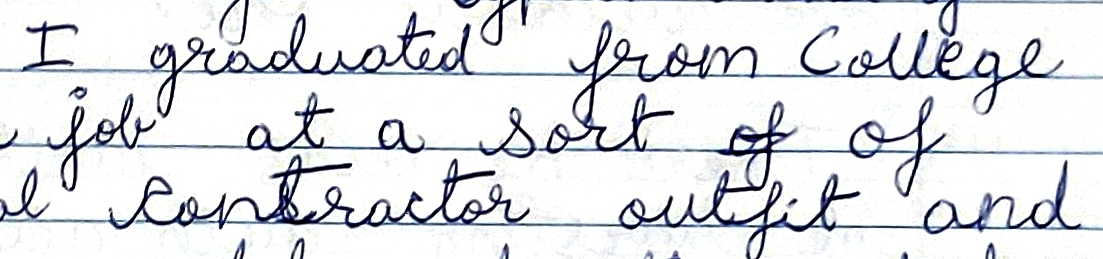 I graduated from College
job at a sort of of
contractor outfit and